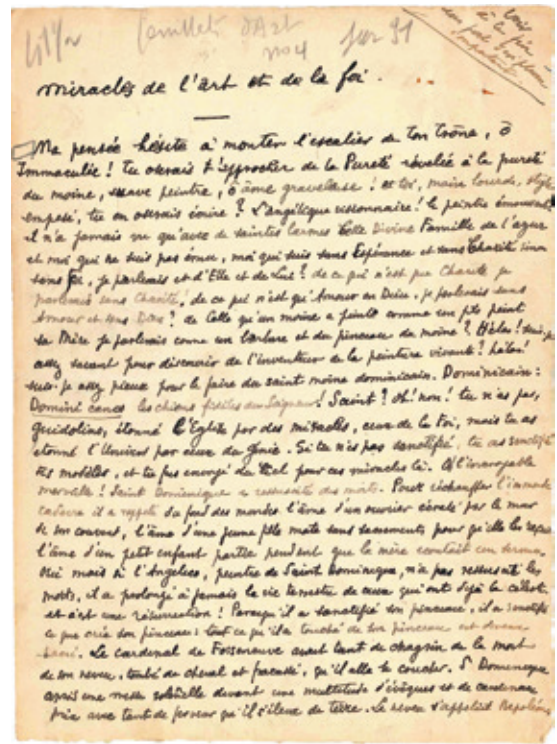 Feuillets d'Art
no 4
miracles de l'art et de la foi.
Ma pensée hésite à monter l'escalier de ton trône, ô
Immaculée ! tu oserais t'approcher de la Pureté révélée à la pureté
du moine, suave peintre, ô âme graveleuse ! et toi, main lourde, style
empesé, tu oserais écrire ? L'angélique visionnaire ! le peintre
il n'a jamais vu qu'avec de saintes larmes Cette Divine Famille de l'azur
et moi qui ne suis pas ému, moi qui suis sans Espérance et sans Charité sinon
sans Foi, je parlerais et d'Elle et de Lui ? de ce qui n'est que Charité je
parlerais sans Charité, de ce qui n'est qu'Amour en Dieu, je parlerais sans
Amour et sans Dieu ? de Celle qu'un moine a peinte comme un fils peint
sa Mère je parlerais comme un barbare et du pinceau du moine ? Hélas ! suis-je
assez savant pour discourir de l'inventeur de la peinture vivante ? hélas !
suis-je assez pieux pour le faire du saint moine dominicain. Dominicain :
Domini canes les chiens fidèles du Seigneur ! Saint ? oh ! non ! tu n'as pas,
guidolino, étonné l'Eglise par des miracles, ceux de la Foi, mais tu as
étonné l'Univers par ceux du génie. Si tu n'es pas sanctifié, tu as sanctifié
tes modèles, et tu fus envoyé du Ciel pour ces miracles là. O l'incroyable
merveille ! Saint Dominique a ressuscité des morts. Pour réchauffer l'immonde
cadavre il a rappelé du fond des mondes l'âme d'un ouvrier écrasé par le mur
de son couvent, l'âme d'une jeune fille morte sans sacrements pour qu'elle les reçut
l'âme d'un petit enfant partie pendant que la mère écoutait un sermon.
Oui mais si l'Angelico, peintre de Saint Dominique, n'a pas ressuscité les
morts, il a prolongé à jamais la vie terrestre de ceux qui ont déjà la céleste
et c'est une résurrection ! Parce qu'il a sanctifié son pinceau, il a sanctifié
ce que créa son pinceau : tout ce qu'il a touché de son pinceau est devenu
sacré. Le cardinal de Fosseneuve avait tant de chagrin de la mort
de son neveu, tombé de cheval et fracassé, qu'il alla se coucher. St Dominique
après une messe solennelle devant une multitude d'évêques et de cardinaux
prie avec tant de ferveur qu'il s'élève de terre. Le neveu s'appelait Napoléon